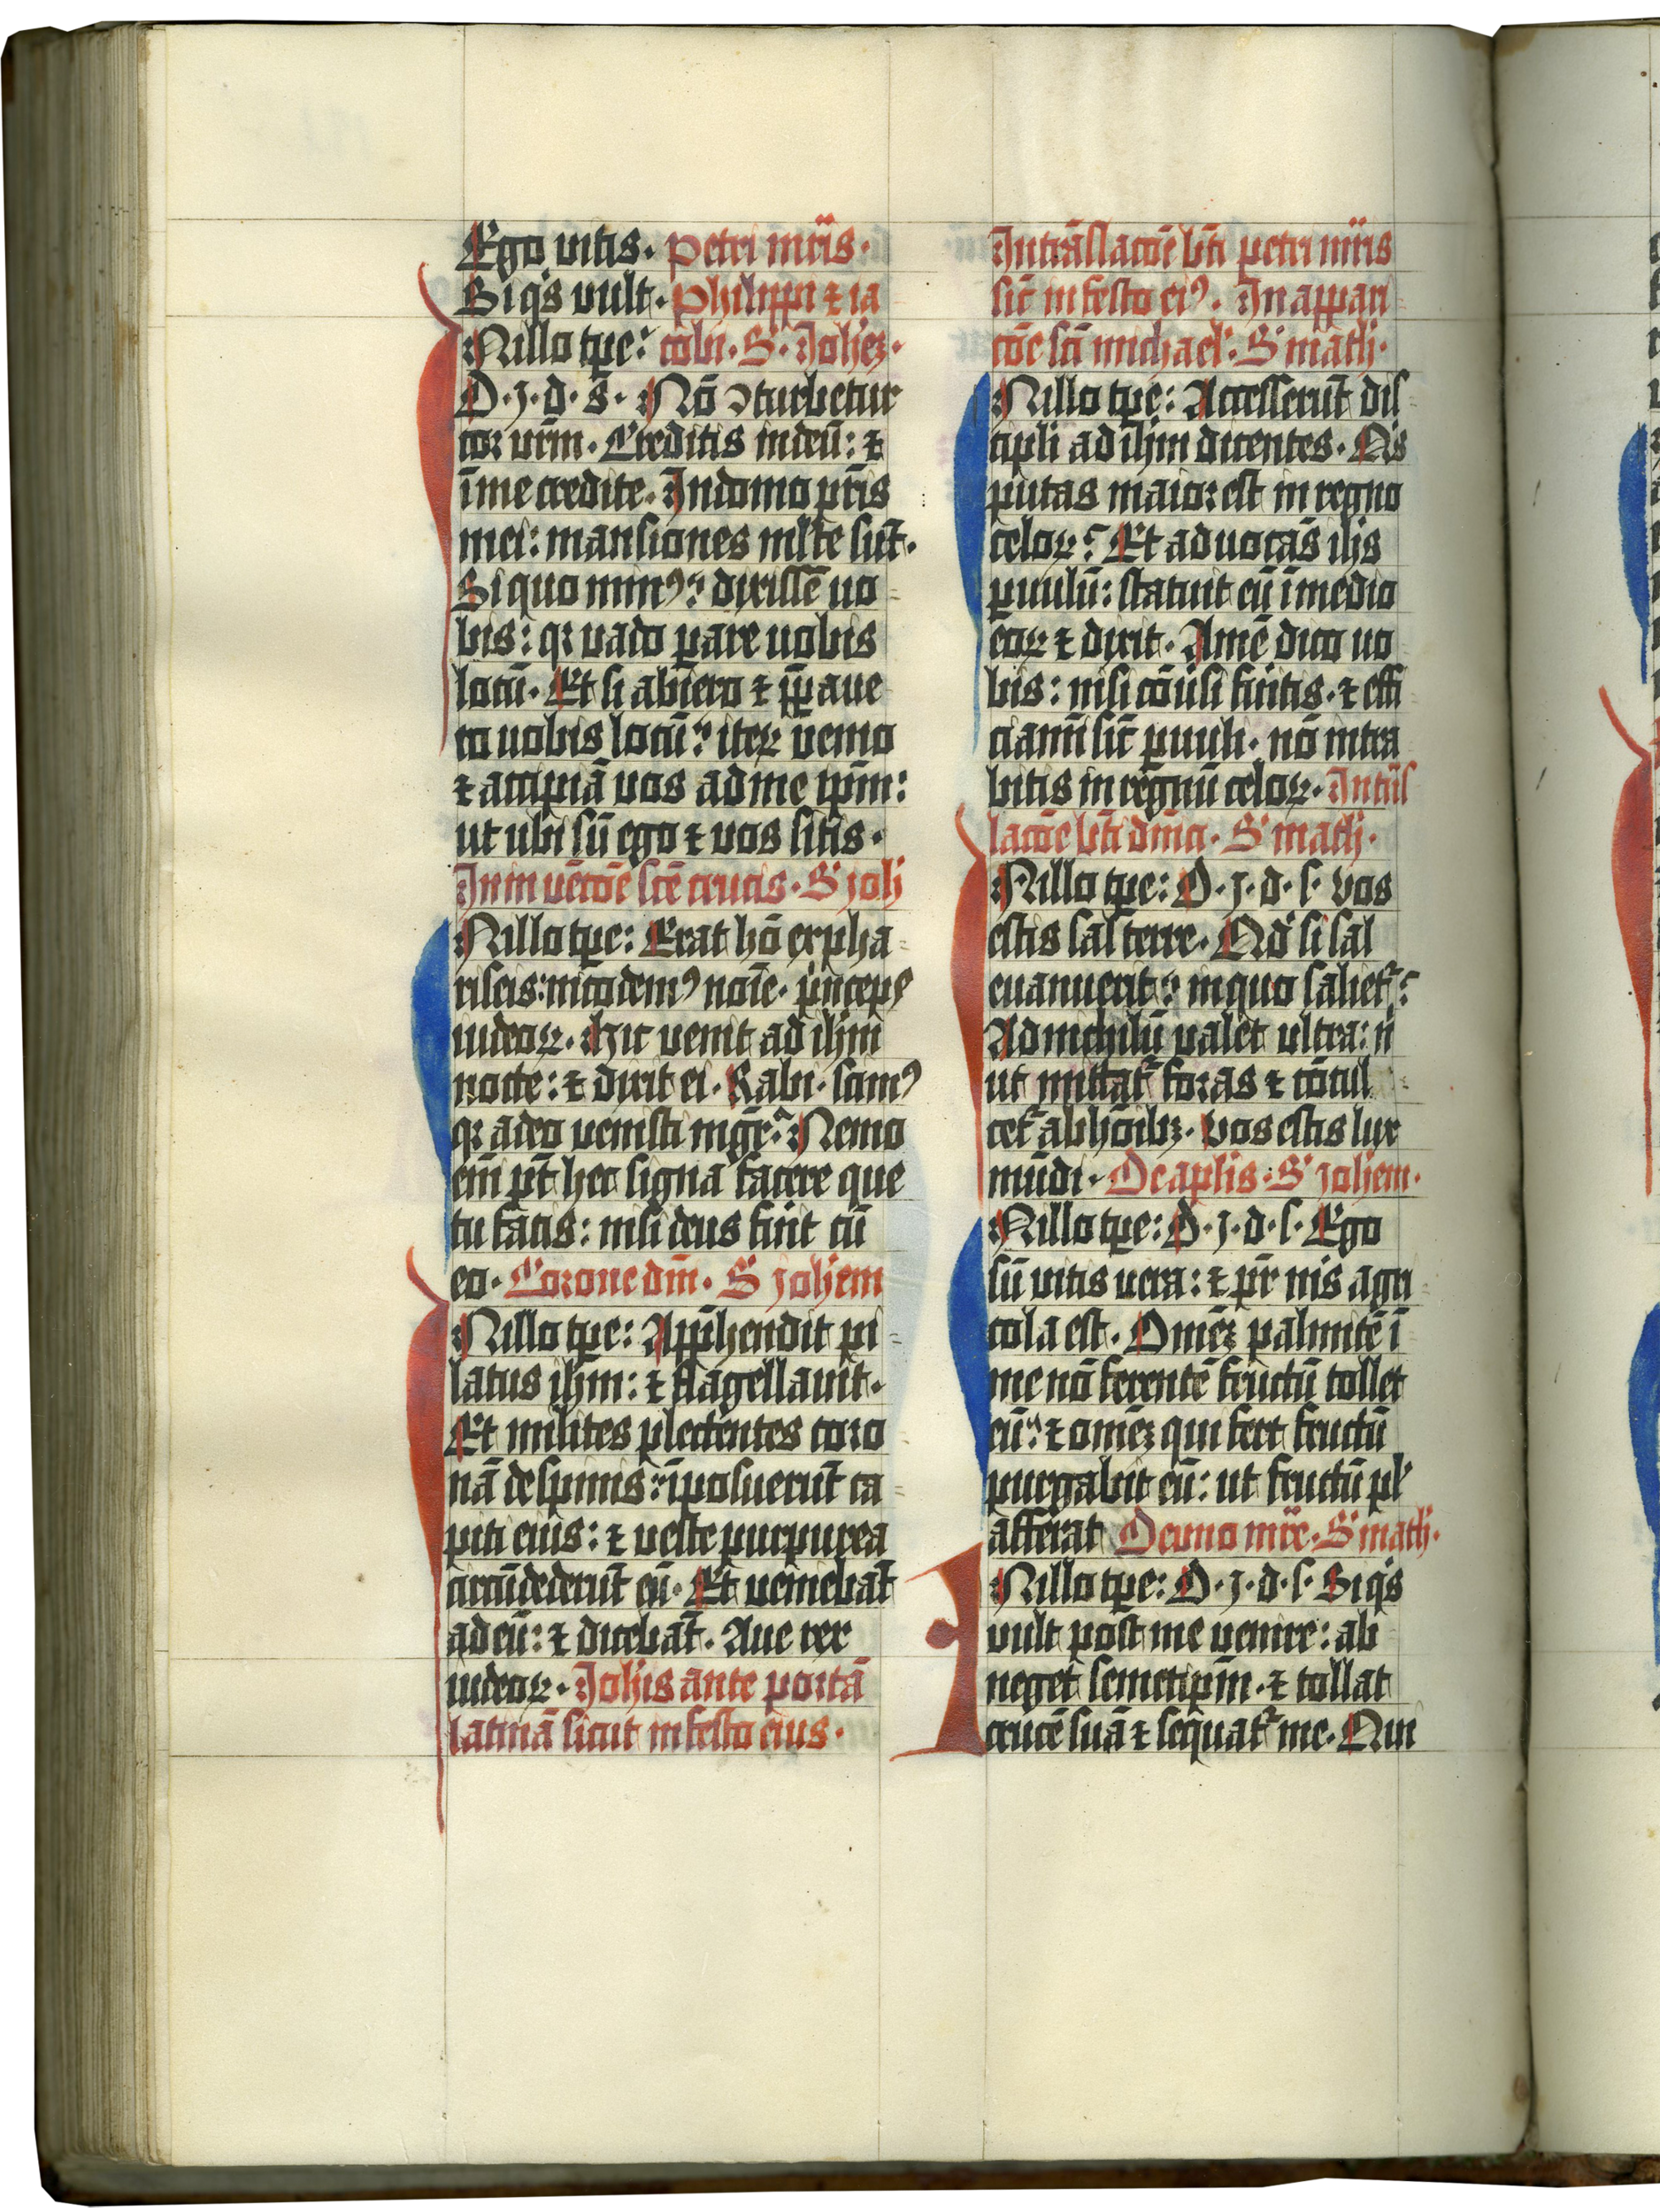 Ego vitis. Petri mr̄is.
Si qͥs vult. Philippi ⁊ ia
Nillo tp̄e: cobi. S. Joh̄ez.
D. J. d. s̄. Nō ꝯturbetur
coꝛ vr̄m. Creditis in deū: ⁊
ī me credite. In domo pr̄is
mei: mansiones ml̄te sūt.
Si quo minꝰ? dixissē uo
bis: qꝛ vado ꝑare uobis
locū. Et si abiero ⁊ p̄ꝑaue
ro uobis locū? iteꝝ venio
⁊ accipiā vos ad me ip̄m:
ut ubi sū ego ⁊ vos sitis.
In inuēcōe sc̄e crucis. S Joh
Nillo tp̄e: Erat hō ex pha
riseis: nicodemꝰ noīe. pͥnceps
iudeoꝝ. hic venit ad ih̄m
nocte: ⁊ dixit ei. Rabi. scimꝰ
qꝛ a deo venisti mgr̄. Nemo
em̄ pt̄ hec signa facere que
tu facis: nisi deus fuͥit cū
eo. Corone dm̄. S Joh̄em
Nillo tp̄e: App̄hendit pi
latus ih̄m: ⁊ flagellauit.
Et milites plectentes coro
nā de spinis: īposuerūt ca
piti eius: ⁊ veste purpurea
circūdederūt eū. Et veniebāt
ad eū: ⁊ dicebāt. Aue rex
iudeoꝝ. Joh̄is ante portā
latinā sicut in festo eius.
In trāslacōe bt̄i petri mr̄is
sic̄ in festo eiꝰ. In appari
cōe sc̄i michael. S math.
Nillo tp̄e: Accesserūt dis
cipli ad ih̄m dicentes. Qͥs
putas maioꝛ est in regno
celoꝝ? Et aduocās ih̄s
puulū: statuit eū ī medio
eoꝝ ⁊ dixit. Amē dico uo
bis: nisi cōuͥsi fuͥitis. ⁊ effi
ciamī sic̄ ꝑuuli. nō intra
bitis in regnū celoꝝ. In tn̄s
lacōe bt̄i dm̄ci. S math.
Nillo tp̄e: D. J. d. s. vos
estis sal terre. Qd̓ si sal
euanuerit? in quo saliet᷑?
Ad nichilū valet ultra: n
ut mittat᷑ foꝛas ⁊ cōcul
cet᷑ ab hōibꝫ. vos estis lux
mūdi. De aplis. S Joh̄em.
Nillo tp̄e: D. J. d. s. Ego
sū vitis uera: ⁊ pr̄ m̄s agri
cola est. Omēz palmitē ī
me nō ferentē fructū tollet
eū: ⁊ omēz qui fert fructū
purgabit eū: ut fructū pl̓
afferat De uno mr̄e. S math.
Nillo tp̄e: D. J. d. s. Si qͥs
vult post me venire: ab
neget semetip̄m. ⁊ tollat
crucē suā ⁊ sequat᷑ me. Qui